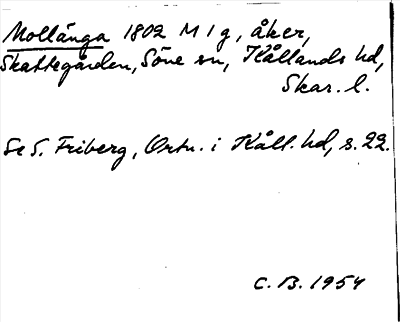 Mollänga 1802 M 1 g, åker,
Skattegården, Söne sn, Kållands hd,
Skar. l.
Se S. Friberg, Ortn. i Kåll. hd, s. 22.
C. B. 1954